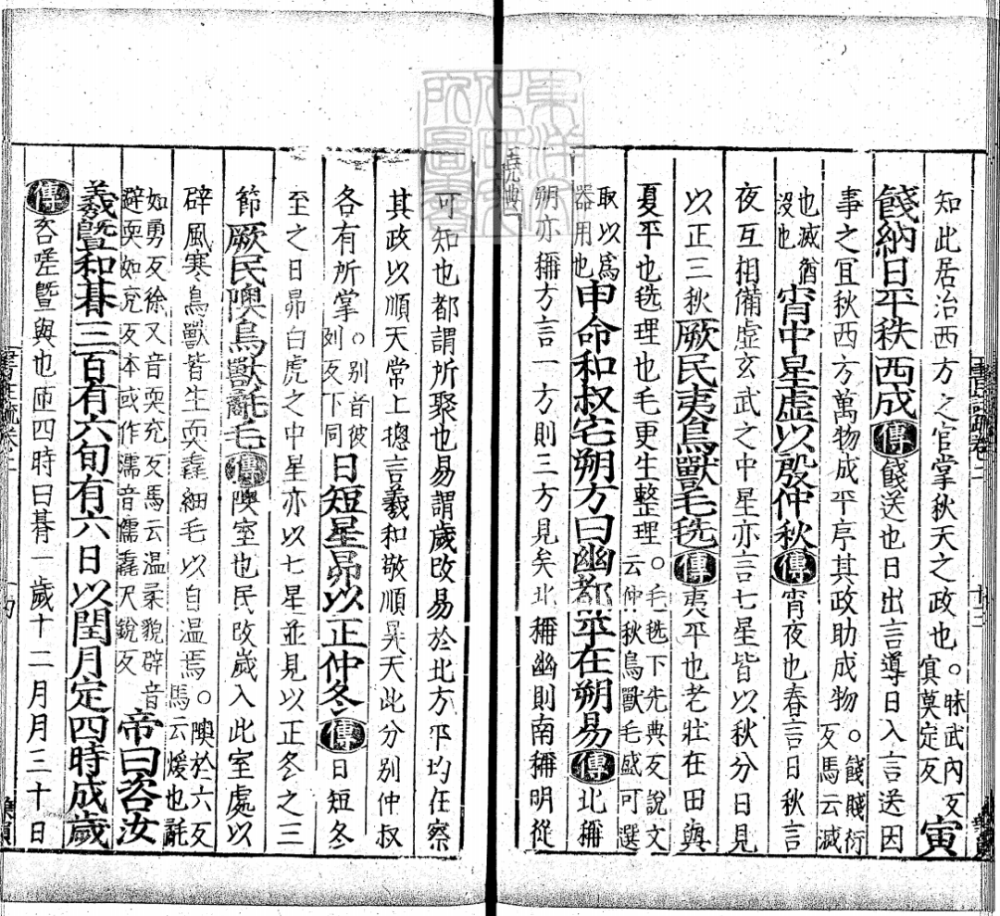 知此居治西方之官掌秋天之政也。昧武內反寘莫定反寅
餞納日平秩西成傳餞送也日出言導日入言送因
事之冝秋西方萬物成平序其政助成物。餞賤衍反馬云滅
也滅猶沒也宵中星虛以殷仲秋傳宵夜也春言日秋言
夜互相備虛玄武之中星亦言七星皆以秋分日見
以正三秋厥民夷鳥獸毛毨傳夷平也老壯在田與
夏平也毨理也毛更生整理。毛毨下先典反說文云仲秋鳥獸毛盛可選
取以爲器用也申命和叔宅朔方曰幽都平在朔易傳北稱
朔亦稱方言一方則三方見矣北稱幽則南稱明從
堯典
可知也都謂所聚也易謂歲改易於北方平均在察
其政以順天常上揔言羲和敬順昊天此分別仲叔
各有所掌。別音彼列反下同日短星昴以正仲冬傳日短冬
至之日昴白虎之中星亦以七星並見以正冬之三
節厥民隩鳥獸氄毛傳隩室也民改歲入此室處以
辟風寒鳥獸皆生耎毳細毛以自溫焉。隩於六反馬云煖也氄
如勇反徐又音耎充反馬云溫柔貌辟音避耎如兗反本或作濡音儒毳尺銳反帝曰咨汝
羲曁和朞三百有六旬有六日以閏月定四時成歲
傳咨嗟曁與也匝四時曰朞一歲十二月月三十日